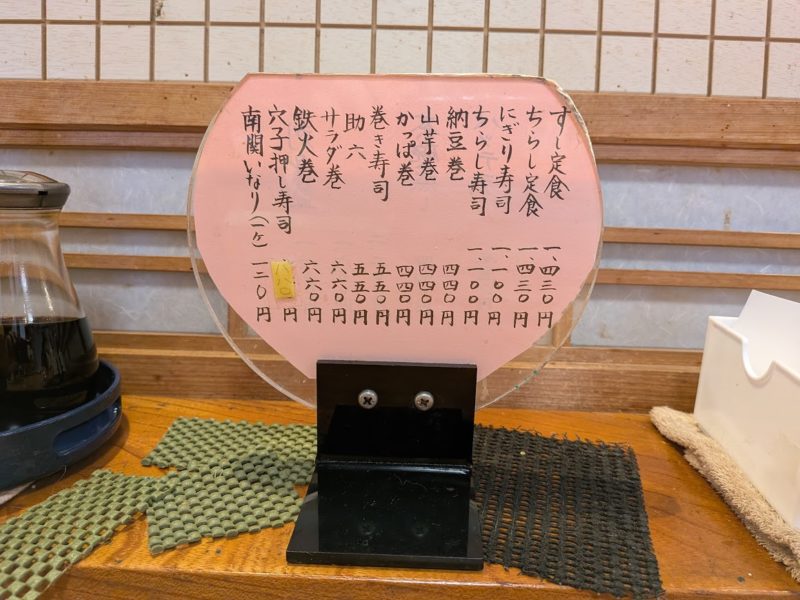 すし定食 一、四三〇円
ちらし定食 一、四三〇円
にぎり寿司 一、一〇〇円
ちらし寿司 一、一〇〇円
納豆巻 四四〇円
山芋巻 四四〇円
かっぱ巻 四四〇円
巻き寿司 五五〇円
助六 五五〇円
サラダ巻 六六〇円
鉄火巻 六六〇円
穴子押し寿司 円
南関いなり(一ヶ) 一二〇円